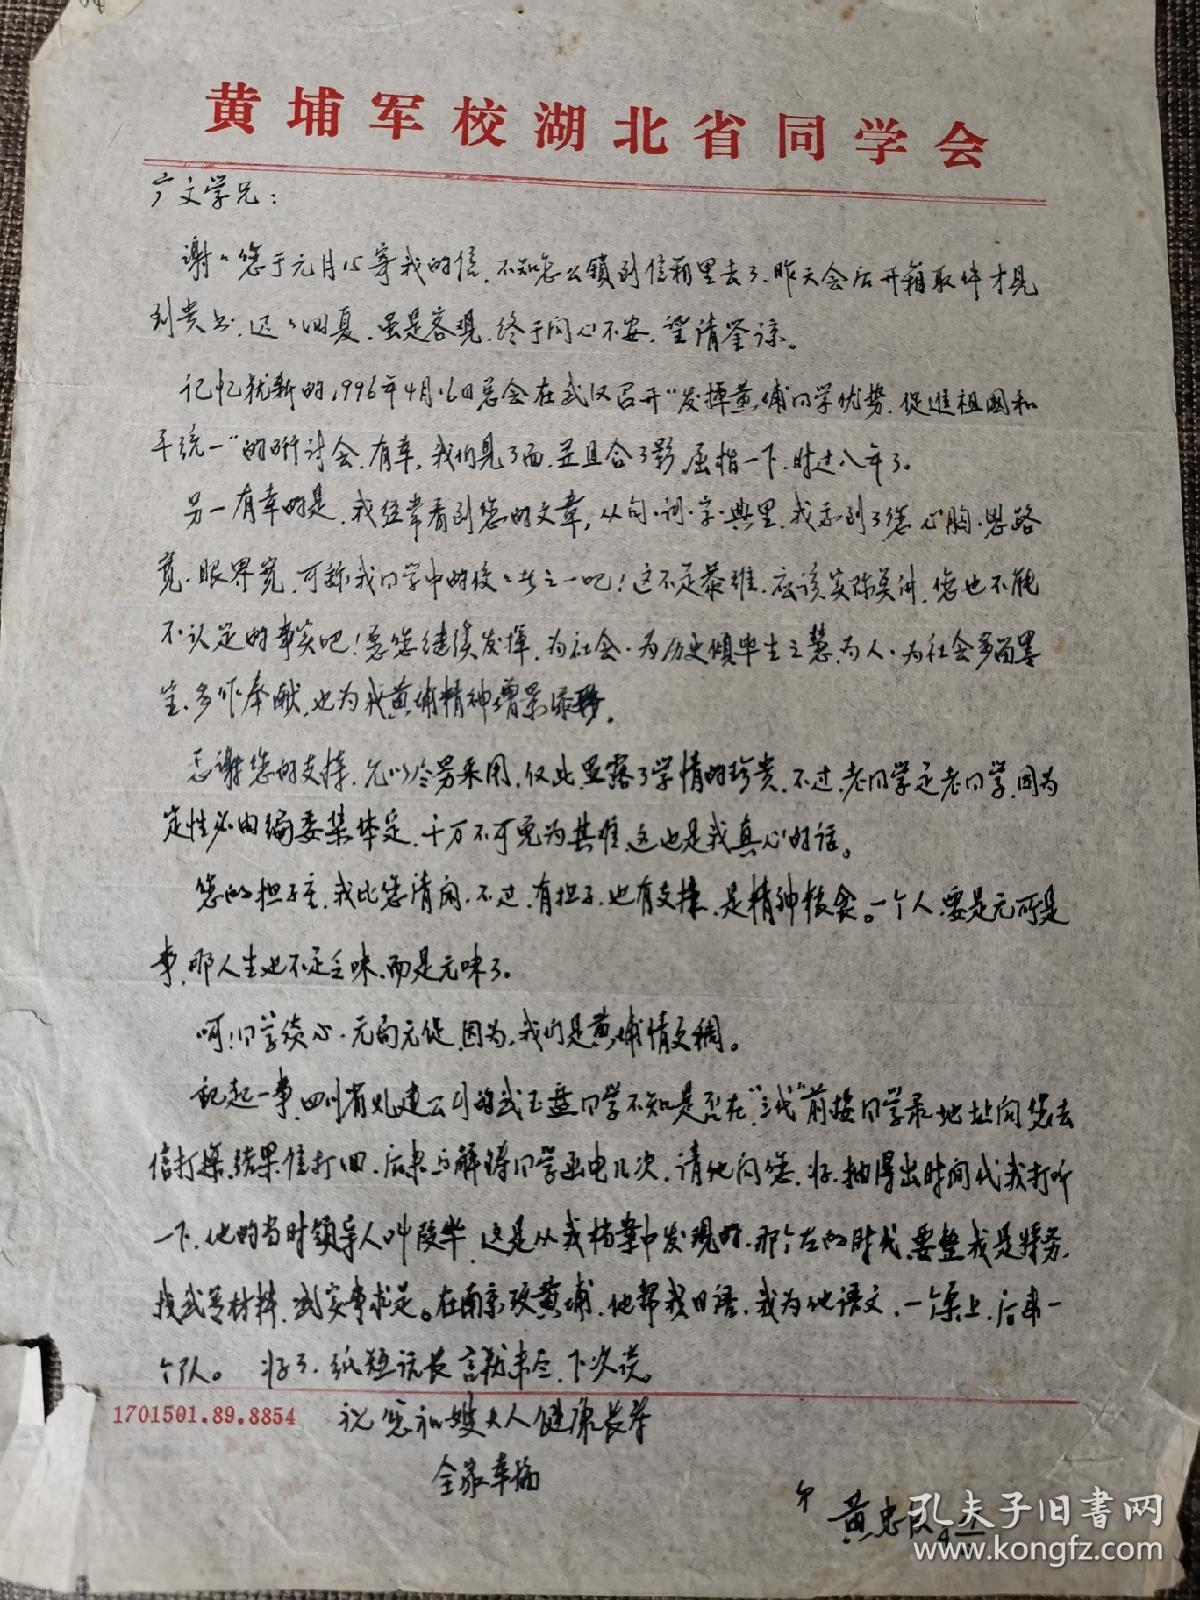 黄埔军校湖北省同学会
广文学兄：
谢々您于元月15寄我的信，不知怎么锁到信箱里去了，昨天会后开箱取件才见
到贵书，迟々回复，虽是客观，终于问心不安，望请鉴谅。
记忆犹新的，1996年4月16日总会在武汉召开“发挥黄埔同学优势，促进祖国和
平统一”的研讨会，有幸，我们见了面，并且合了影，屈指一下，时过八年了。
另一有幸的是，我经常看到您的文章，从句、词、字、典里，我看到了您心胸、思路
宽、眼界宽，可称我同学中的佼々者之一吧！这不是恭维，应该实际类 您也不能
不认定的事实吧！愿您继续发挥，为社会、为历史倾毕生之慧，为人、为社会多留墨
宝，多作奉献，也为我黄埔精神增景添彩。
感谢您的支持，允以 采用，仅此显露了学情的珍贵，不过，老同学是老同学，因为
定性必由编委集体定，千万不可免为其难，这也是我真心的话。
您的担子重，我比您清闲，不过，有担子，也有支撑，是精神粮食。一个人，要是无所是
事，那人生也不是乏味，而是无味了。
呵！同学谈心，无拘无促，因为，我们是黄埔情更稠。
记起一事，四川省 建公司的武玉盘同学不知是否在“三戈”前按同学录地址向您去
信打探，结果信打回，后来与解铸同学函电几次，请他问您，将抽得出时间代我打听
一下，他的当时领导人叫段华，这是从我档案中发现的，那个左的时代，要整我是特务，
找武等材料，武实事求是。在南京改黄埔，他帮我日语，我为他语文，一个桌上，后来一
个队。 好了，纸短话长，言犹未尽，下次谈。
祝您和嫂夫人健康长寿
全家幸福
1701501.89.8854
弟 黄忠
孔夫子旧书网
www.kongfz.com